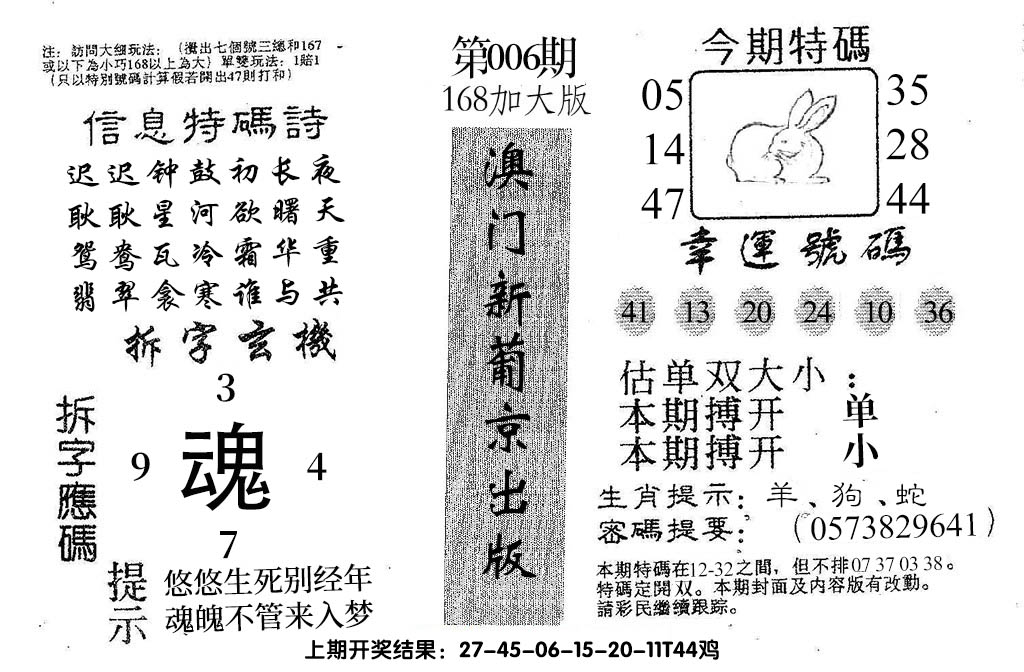 注：訪問大細玩法：（攪出七個號三總和167
或以下為小巧168以上為大）單雙玩法：1賠1
（只以特別號碼計算假若開出47則打和）
信息特碼詩
迟迟钟鼓初长夜
耿耿星河欲曙天
鸳鸯瓦冷霜华重
翡翠衾寒谁与共
拆字玄機
拆字應碼
3
9 魂 4
7
提示
悠悠生死别经年
魂魄不管来入梦
第006期
168加大版
澳门新葡京出版
今期特碼
05 35
14 28
47 44
幸運號碼
41 13 20 24 10 36
估单双大小：
本期搏开 单
本期搏开 小
生肖提示：羊、狗、蛇
密碼提要：（0573829641）
本期特碼在12-32之間，但不排07 37 03 38。
特碼定開双。本期封面及内容版有改動。
請彩民繼續跟踪。
上期开奖结果：27-45-06-15-20-11T44鸡